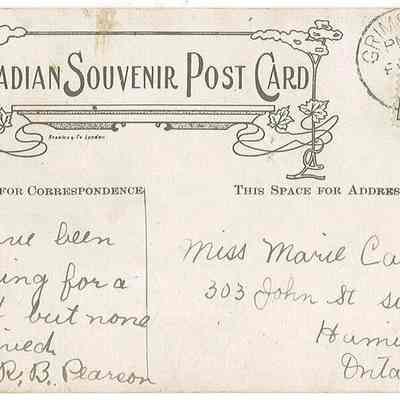 ADIAN SOUVENIR POST CARD
GRIMS
PM
FOR CORRESPONDENCE
THIS SPACE FOR ADDRES
ave been
ing for a
but none
ived
R. B. Pearson
Miss Marie Ca
303 John St
Hami
Onta